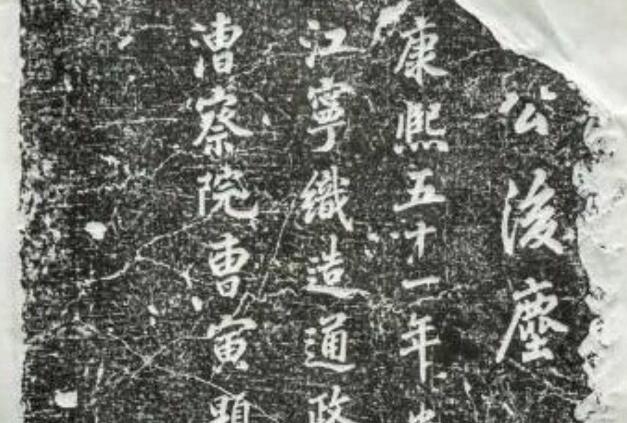 公後塵
康熙五十一年
江寧織造通政
漕察院曹寅題